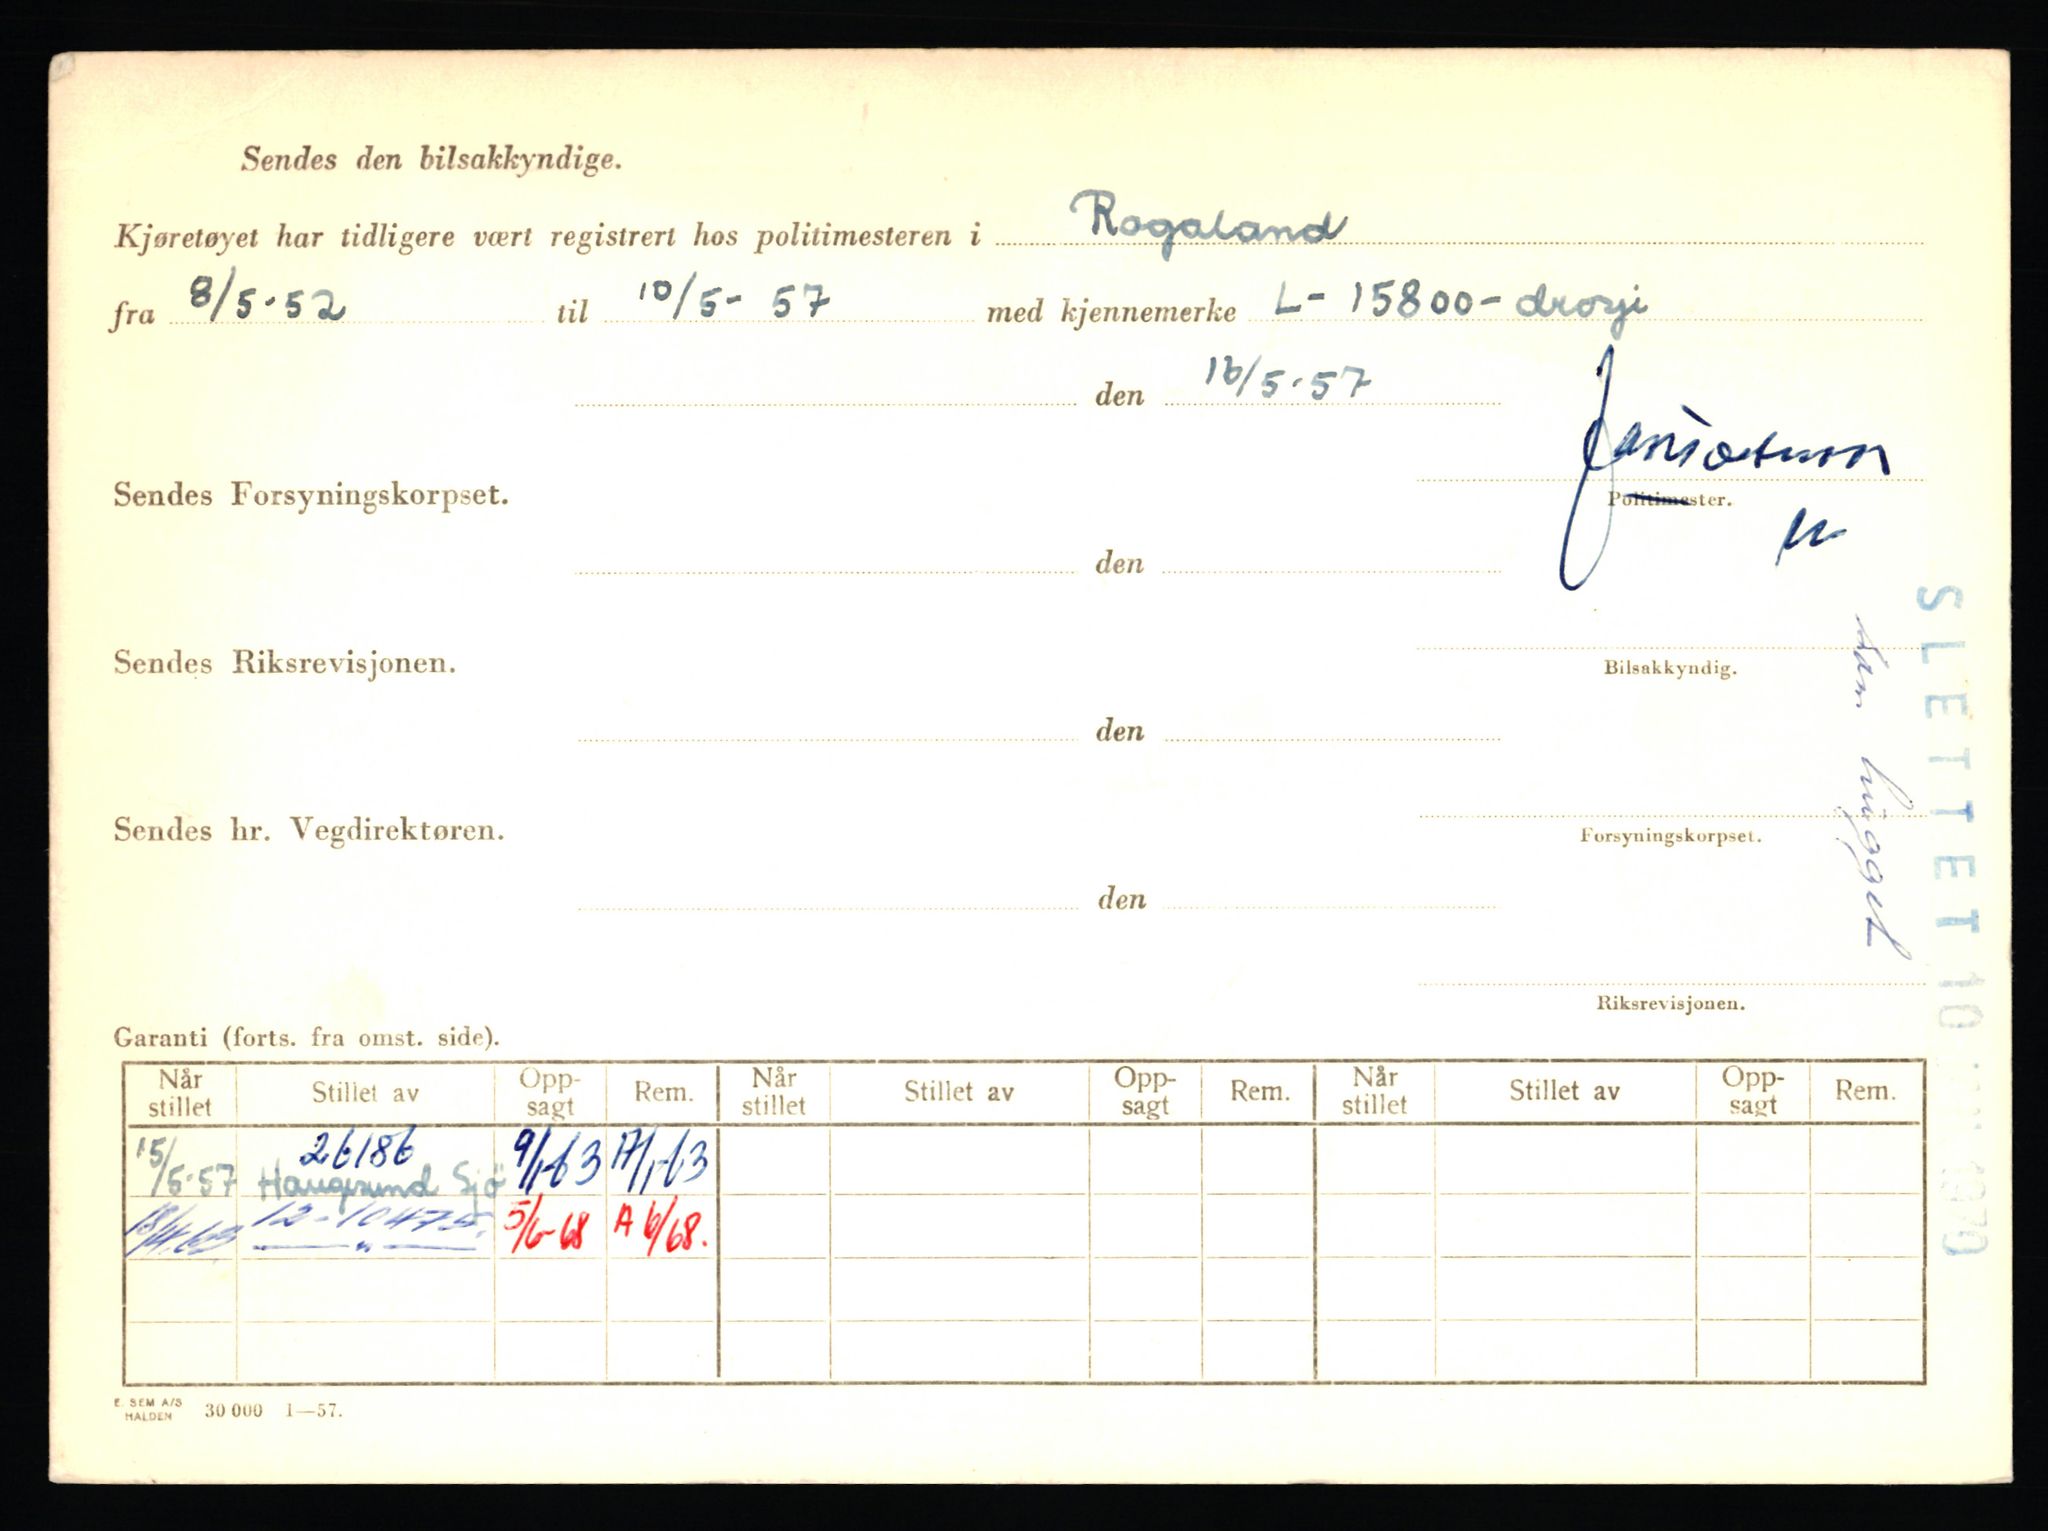 Sendes den bilsakkyndige.
Kjøretøyet har tidligere vært registrert hos politimesteren i Rogaland
fra 8/5-52 til 10/5-57 med kjennemerke L-15800-drosje
den 16/5-57
Sendes Forsyningskorpset.
Politimester.
den
Sendes Riksrevisjonen.
Bilsakkyndig.
den
Sendes hr. Vegdirektøren.
Forsyningskorpset.
den
Riksrevisjonen.
SLETTET 10 1970
som hugget
Garanti (forts. fra omst. side).
Når stillet Stillet av Opp-sagt Rem. Når stillet Stillet av Opp-sagt Rem. Når stillet Stillet av Opp-sagt Rem.
15/5-57 26186 Haugesund Sjø 9/1-63 17/1-63
12-10475. — " — 5/6-68 A 6/68.
E. SEM A/S
HALDEN 30 000 1—57.